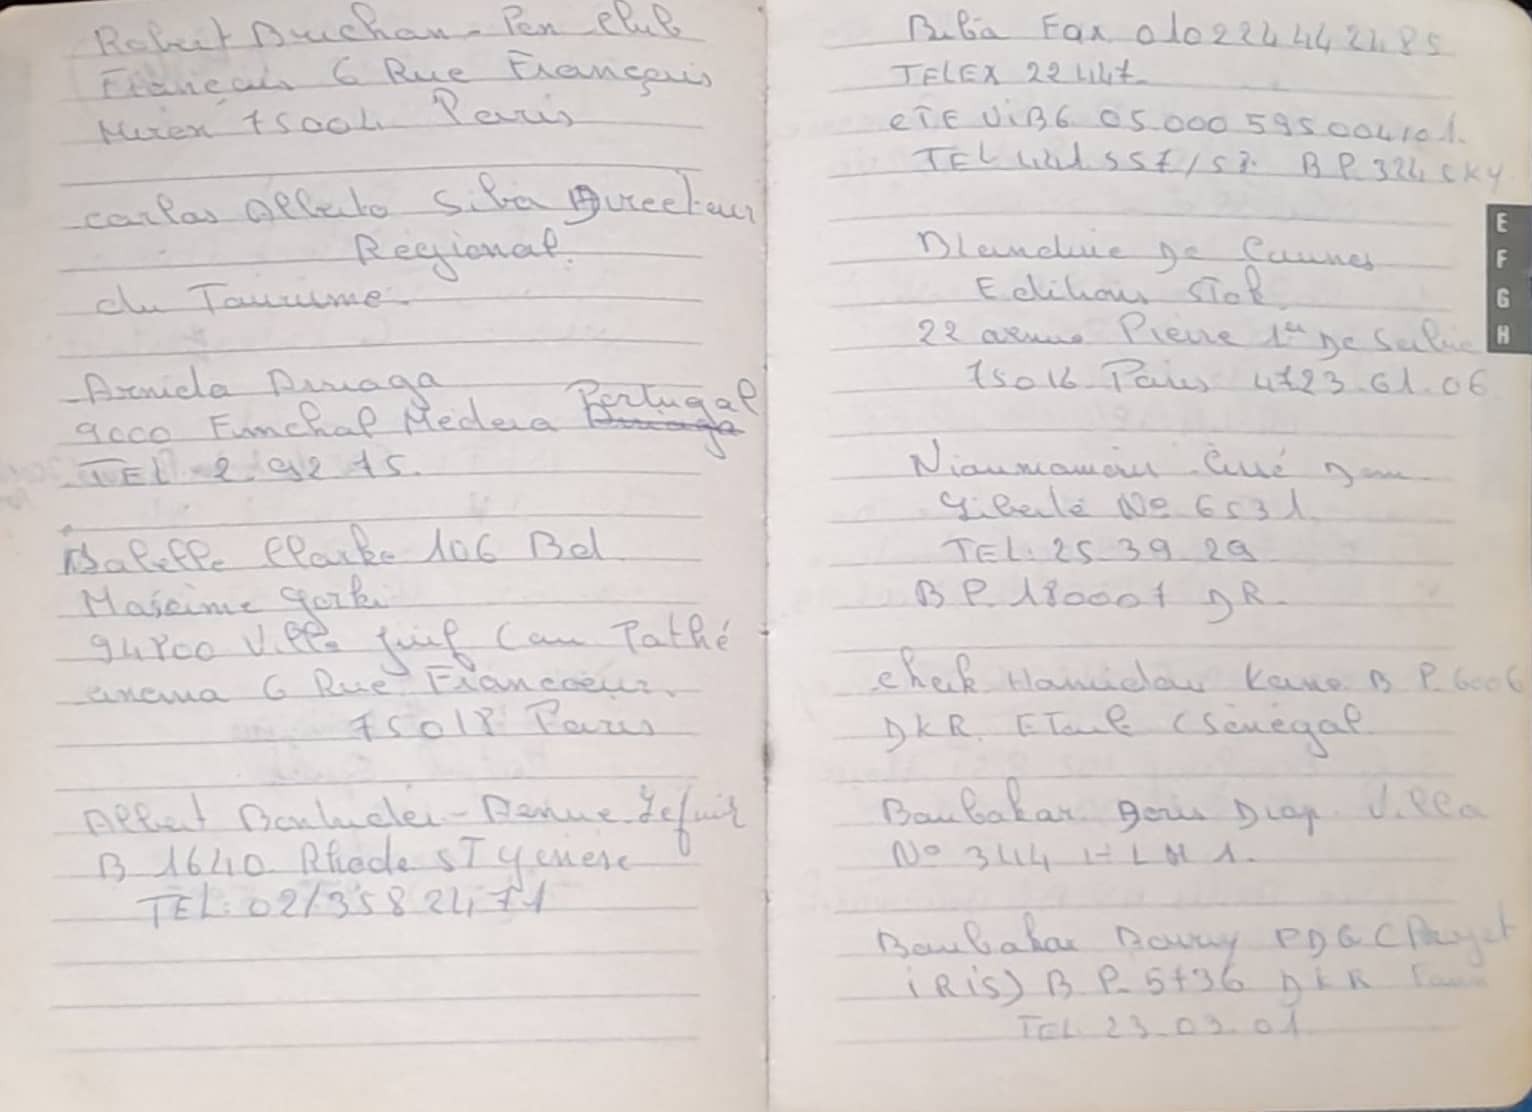 Robert Bruchan - Pen Club
Français 6 Rue François
Miren 75004 Paris
carlos Alberto Silva Directeur
Régional.
du Tourisme.
Arnida Arruaga
9000 Funchal Medera Portugal
TEL 2.92 75.
Clarke 106 Bd
Maxime Gorki
94800 Ville juif Cam Pathé
cinema 6 Rue Francoeur.
75018 Paris
Albert - Avenue
B 1640 Rhode ST Genese
TEL: 02/358 24 71
Fax 010 224 442485
TELEX 22447
05.000 595 004101.
TEL 441 557/58. B P. 324 CKY
Blandine De Caunes
Editions Stok
22 avenue Pierre 1er De Serbie
75016 Paris 4723.61.06
Ciré Dem
Liberté No 6531
TEL: 25 39 29
B P. 180007 DR.
Cheik Hamidou Kane B P. 6006
DKR. ETOILE (Sénégal.
Boubakar Diop Villa
No 344 HLM 1.
Boubakar PDG (Proyet
iRis) B P. 5736 DKR Fann
TEL. 23.03.01
E
F
G
H